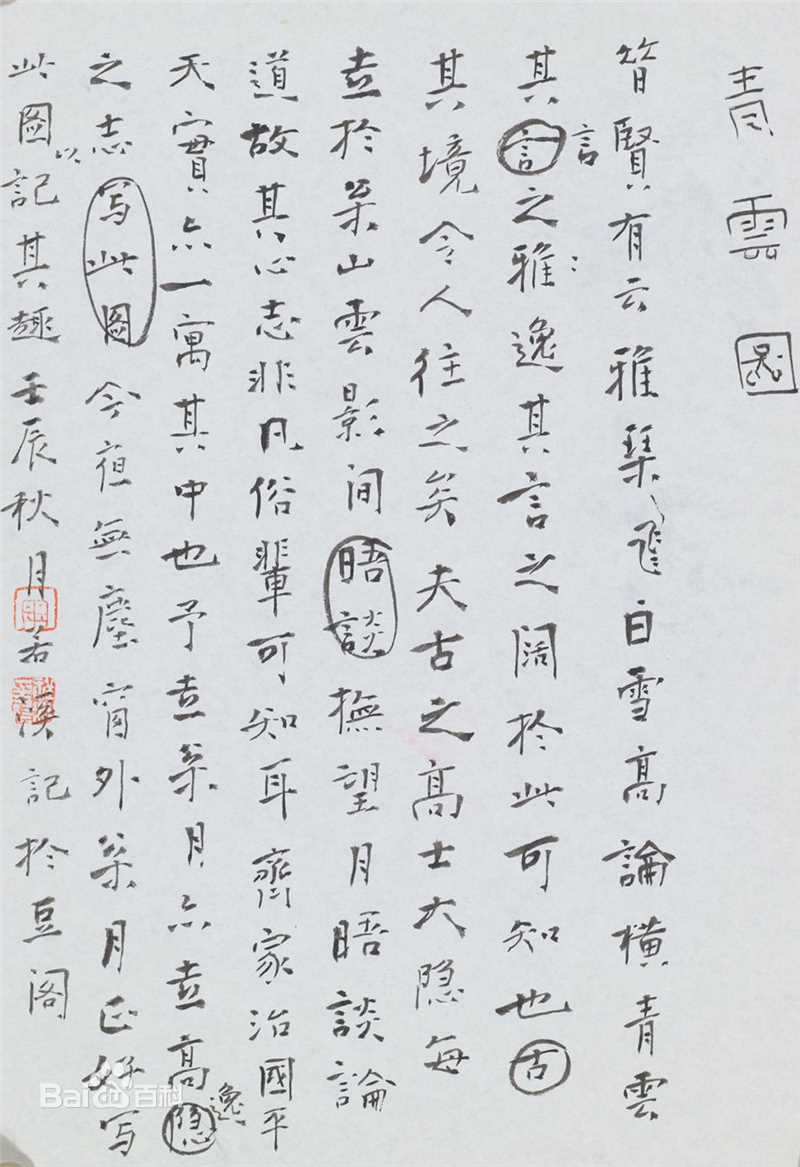 青雲圖
昔賢有云雅琴飛白雪高論橫青雲
其言言之雅逸其言之阔於此可知也古
其境令人往之矣夫古之高士大隐每
喜於山雲影间晤談撫望月晤談論
道故其心志非凡俗輩可知耳齊家治國平
天實亦一寓其中也予喜月亦喜高隐逸
之志写此图今夜無塵窗外月正好写
此图以記其趣壬辰秋月若溪記於豆阁
Baidu百科